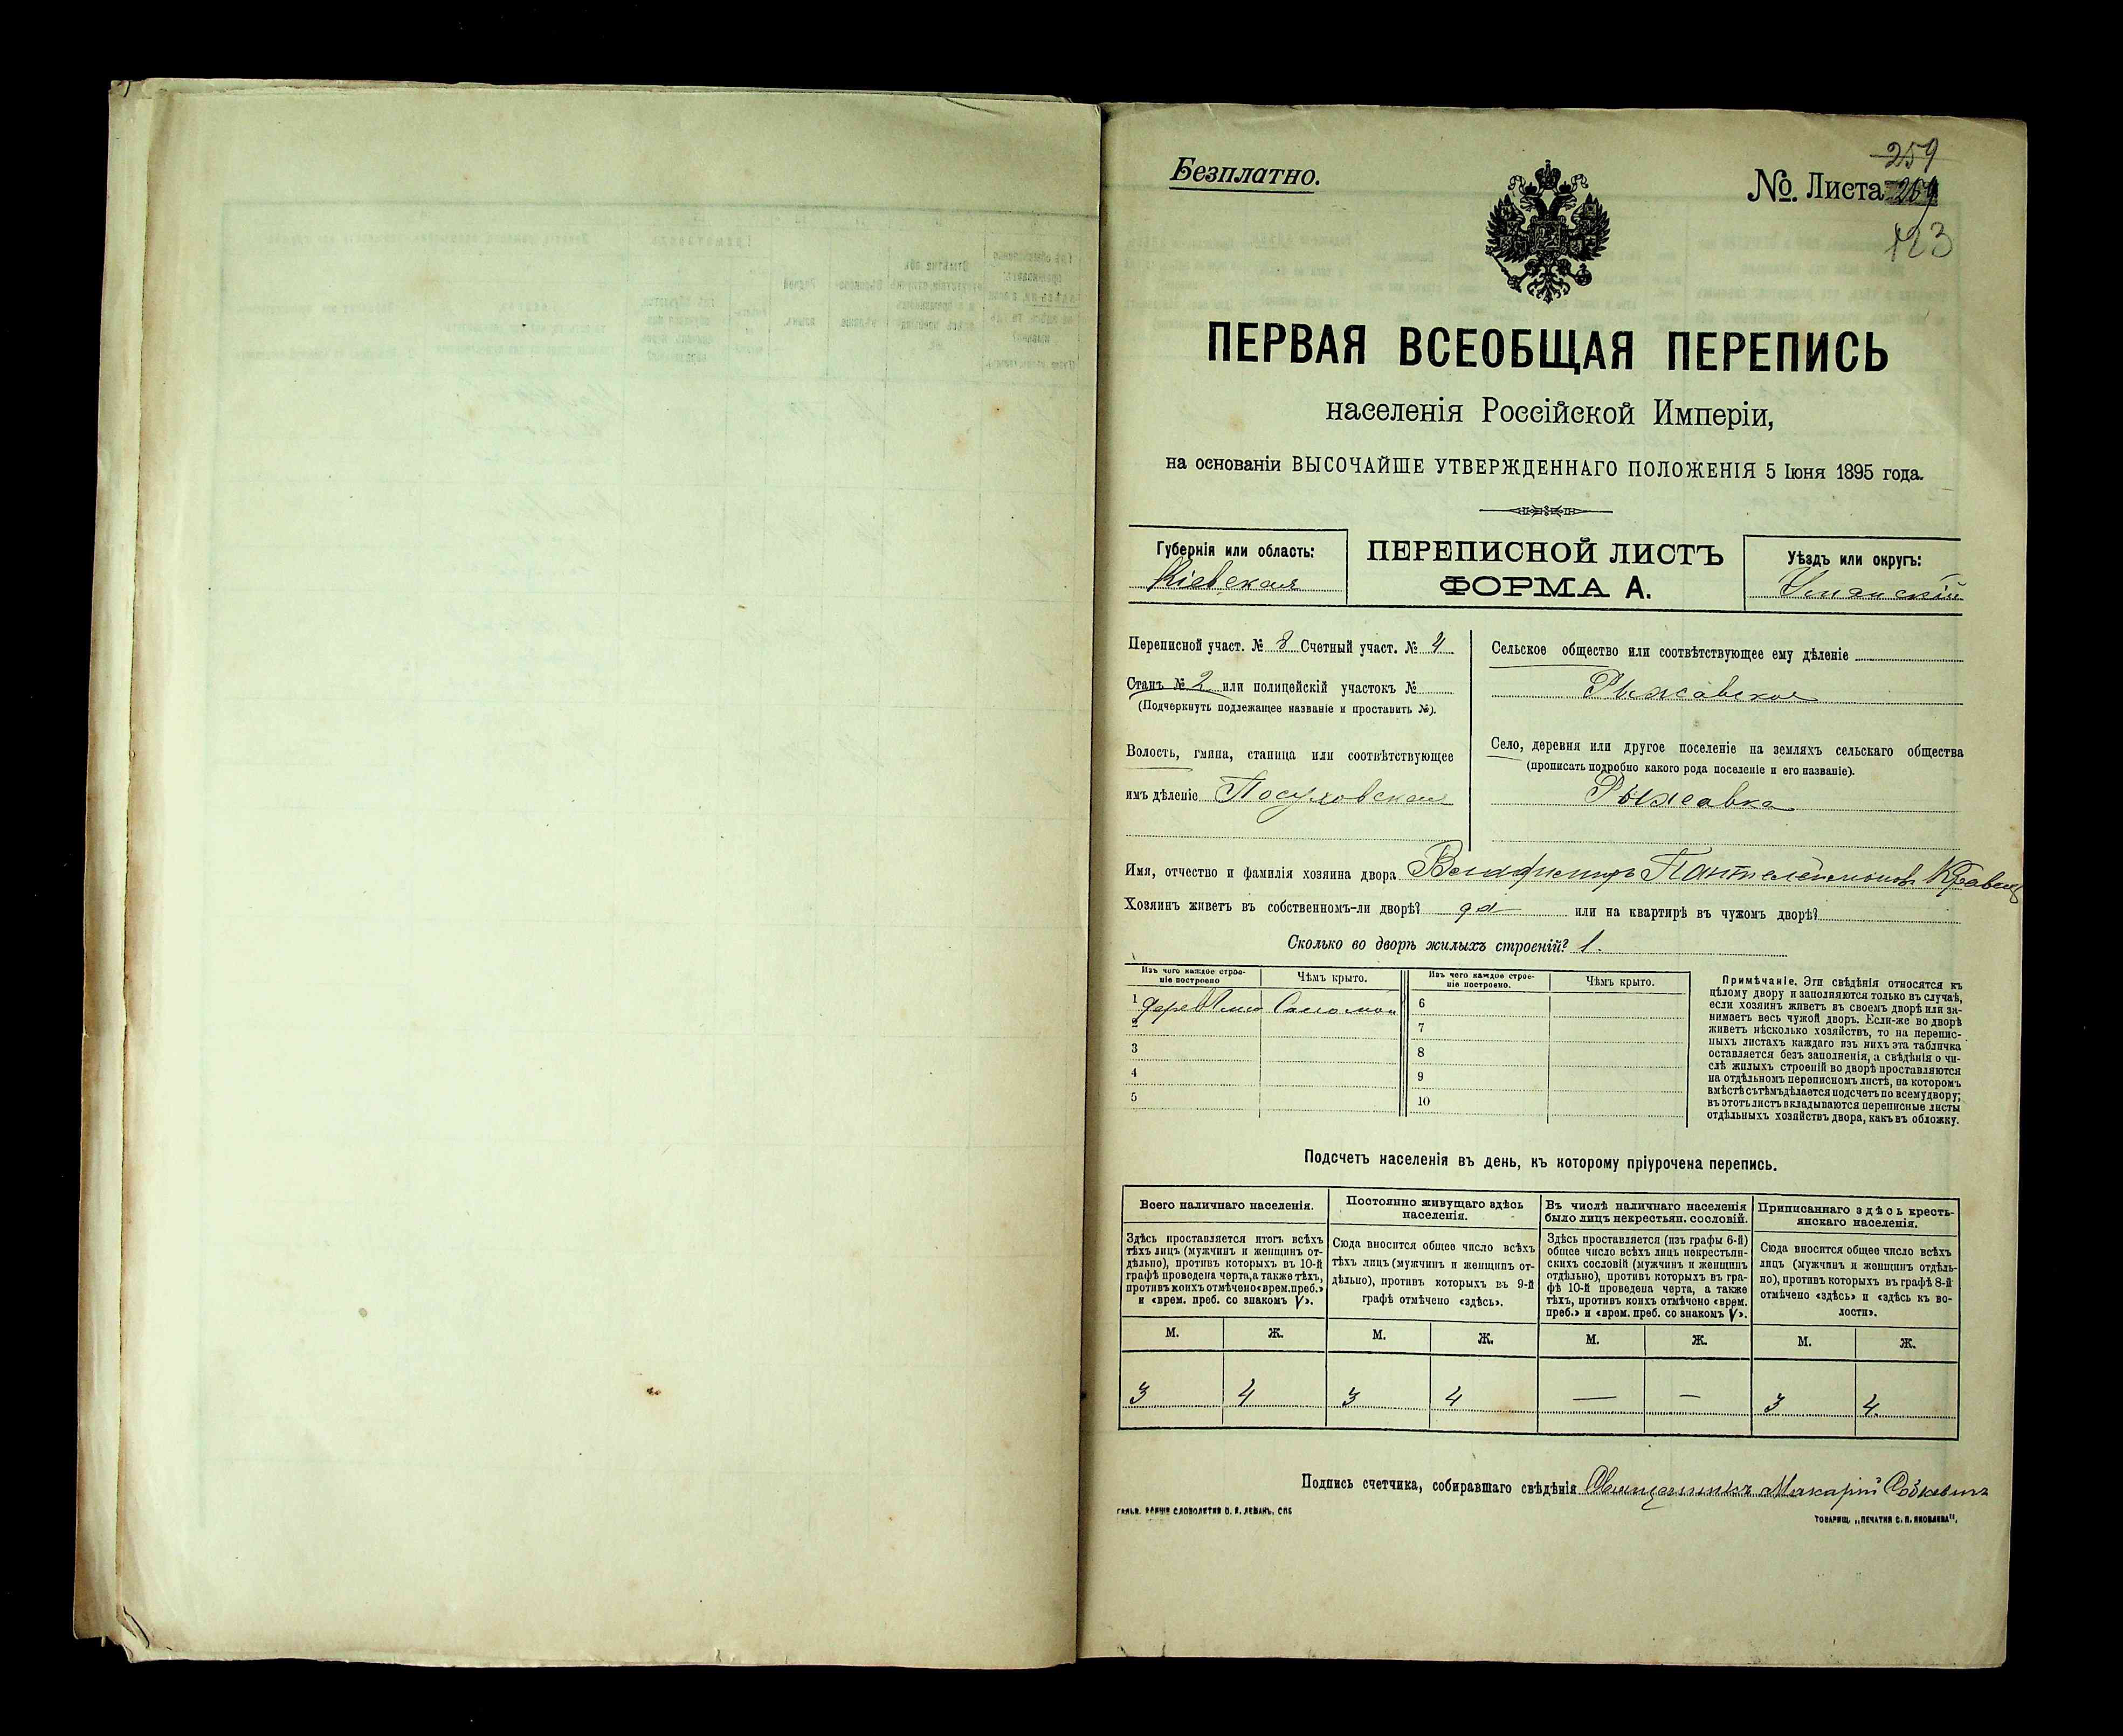 Безплатно.
259
№. Листа 204
123
ПЕРВАЯ ВСЕОБЩАЯ ПЕРЕПИСЬ
населенія Россійской Имперіи,
на основаніи ВЫСОЧАЙШЕ УТВЕРЖДЕННАГО ПОЛОЖЕНІЯ 5 Іюня 1895 года.
Губернія или область:
Кіевская
ПЕРЕПИСНОЙ ЛИСТЪ
ФОРМА А.
Уѣздъ или округъ:
Уманскій
Переписной участ. № 8 Счетный участ. № 4
Станъ № 2 или полицейскій участокъ №
(Подчеркнуть подлежащее названіе и проставить №).
Волость, гмина, станица или соотвѣтствующее
имъ дѣленіе Посуховская
Сельское общество или соотвѣтствующее ему дѣленіе
Рыжавское
Село, деревня или другое поселеніе на земляхъ сельскаго общества
(прописать подробно какого рода поселеніе и его названіе).
Рыжавка
Имя, отчество и фамилія хозяина двора Пантелеимоновъ Кравецъ
Хозяинъ живетъ въ собственномъ-ли дворѣ? да или на квартирѣ въ чужомъ дворѣ?
Сколько во дворѣ жилыхъ строеній? 1.
Изъ чего каждое строе-
ніе построено
Чѣмъ крыто.
Изъ чего каждое строе-
ніе построено.
Чѣмъ крыто.
1 Соломой
2
3
4
5
6
7
8
9
10
Примѣчаніе. Эти свѣдѣнія относятся къ
цѣлому двору и заполняются только въ случаѣ,
если хозяинъ живетъ въ своемъ дворѣ или за-
нимаетъ весь чужой дворъ. Если-же во дворѣ
живетъ нѣсколько хозяйствъ, то на перепис-
ныхъ листахъ каждаго изъ нихъ эта табличка
оставляется безъ заполненія, а свѣдѣнія о чи-
слѣ жилыхъ строеній во дворѣ проставляются
на отдѣльномъ переписномъ листѣ, на которомъ
вмѣстѣ съ тѣмъ дѣлается подсчетъ по всему двору;
въ этотъ листъ вкладываются переписные листы
отдѣльныхъ хозяйствъ двора, какъ въ обложку.
Подсчетъ населенія въ день, къ которому пріурочена перепись.
Всего наличнаго населенія.
Здѣсь проставляется итогъ всѣхъ
тѣхъ лицъ (мужчинъ и женщинъ от-
дѣльно), противъ которыхъ въ 10-й
графѣ проведена черта, а также тѣхъ,
противъ коихъ отмѣчено «врем. преб.»
и «врем. преб. со знакомъ V».
Постоянно живущаго здѣсь
населенія.
Сюда вносится общее число всѣхъ
тѣхъ лицъ (мужчинъ и женщинъ от-
дѣльно), противъ которыхъ въ 9-й
графѣ отмѣчено «здѣсь».
Въ числѣ наличнаго населенія
было лицъ некрестьян. сословій.
Здѣсь проставляется (изъ графы 6-й)
общее число всѣхъ лицъ некрестьян-
скихъ сословій (мужчинъ и женщинъ
отдѣльно), противъ которыхъ въ гра-
фѣ 10-й проведена черта, а также
тѣхъ, противъ коихъ отмѣчено «врем.
преб.» и «врем. преб. со знакомъ V».
Приписаннаго здѣсь кресть-
янскаго населенія.
Сюда вносится общее число всѣхъ
лицъ (мужчинъ и женщинъ отдѣль-
но), противъ которыхъ въ графѣ 8-й
отмѣчено «здѣсь» и «здѣсь къ во-
лости».
М. Ж. М. Ж. М. Ж. М. Ж.
3 4 3 4 — — 3 4
Подпись счетчика, собиравшаго свѣдѣнія Священникъ Макарій
ГАЛЬВ. КЛИШЕ СЛОВОЛИТНИ О. И. ЛЕМАНЪ, СПБ
ТОВАРИЩ. „ПЕЧАТНЯ С. П. ЯКОВЛЕВА“.